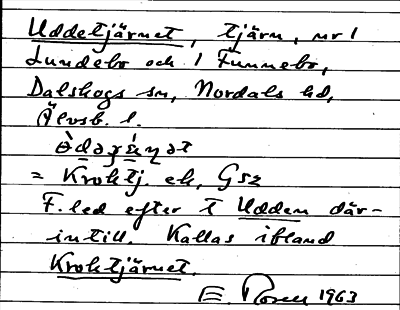 Uddetjärnet, tjärn, nr 1
Lundebo och 1 Funnebo,
Dalskogs sn, Nordals hd,
Älvsb. l.
= Kroktj. ek, Gsz
F. led efter t Udden där-
intill. Kallas ibland
Kroktjärnet.
E. Rosen 1963